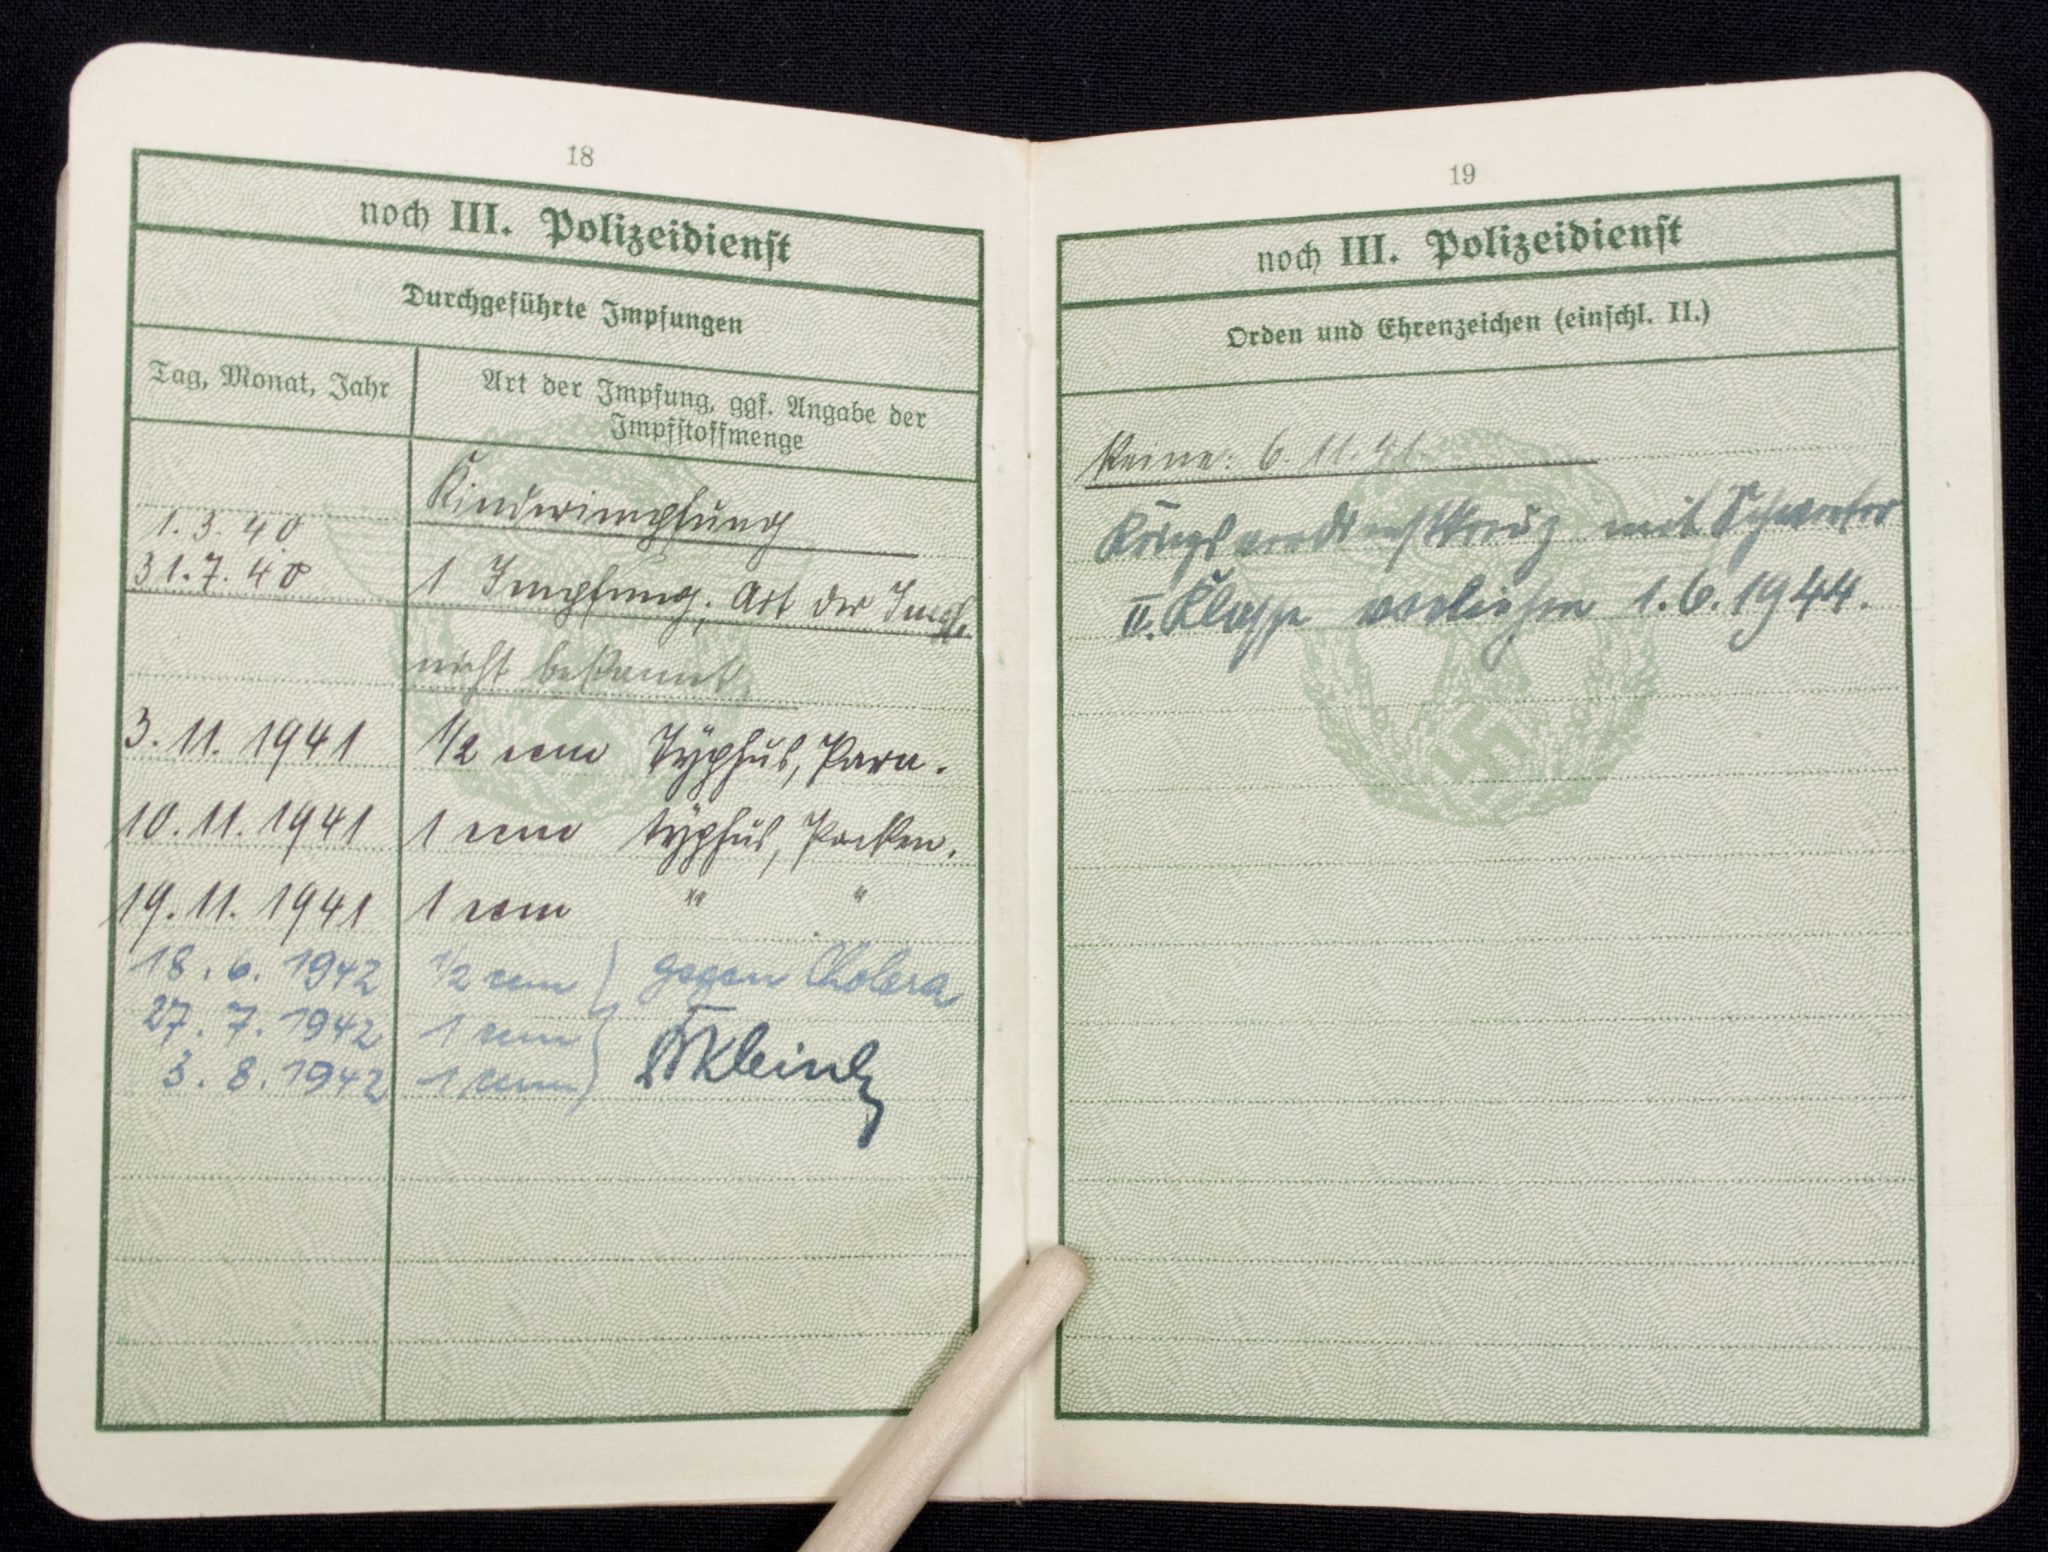 18
noch III. Polizeidienst
Durchgeführte Impfungen
Tag, Monat, Jahr
Art der Impfung, ggf. Angabe der
Impfstoffmenge
Kinderimpfung
1. 3. 40
31. 7. 40
1 Impfung. Art der Impf.
nicht bekannt.
3. 11. 1941 1/2 ccm Typhus, Para.
10. 11. 1941 1 ccm typhus, Pocken.
19. 11. 1941 1 ccm " "
18. 6. 1942 1/2 ccm gegen Cholera
27. 7. 1942 1 ccm
3. 8. 1942 1 ccm
19
noch III. Polizeidienst
Orden und Ehrenzeichen (einschl. II.)
Keine: 6. 11. 41.
Kriegsverdienstkreuz mit Schwerter
II. Klasse verliehen 1. 6. 1944.